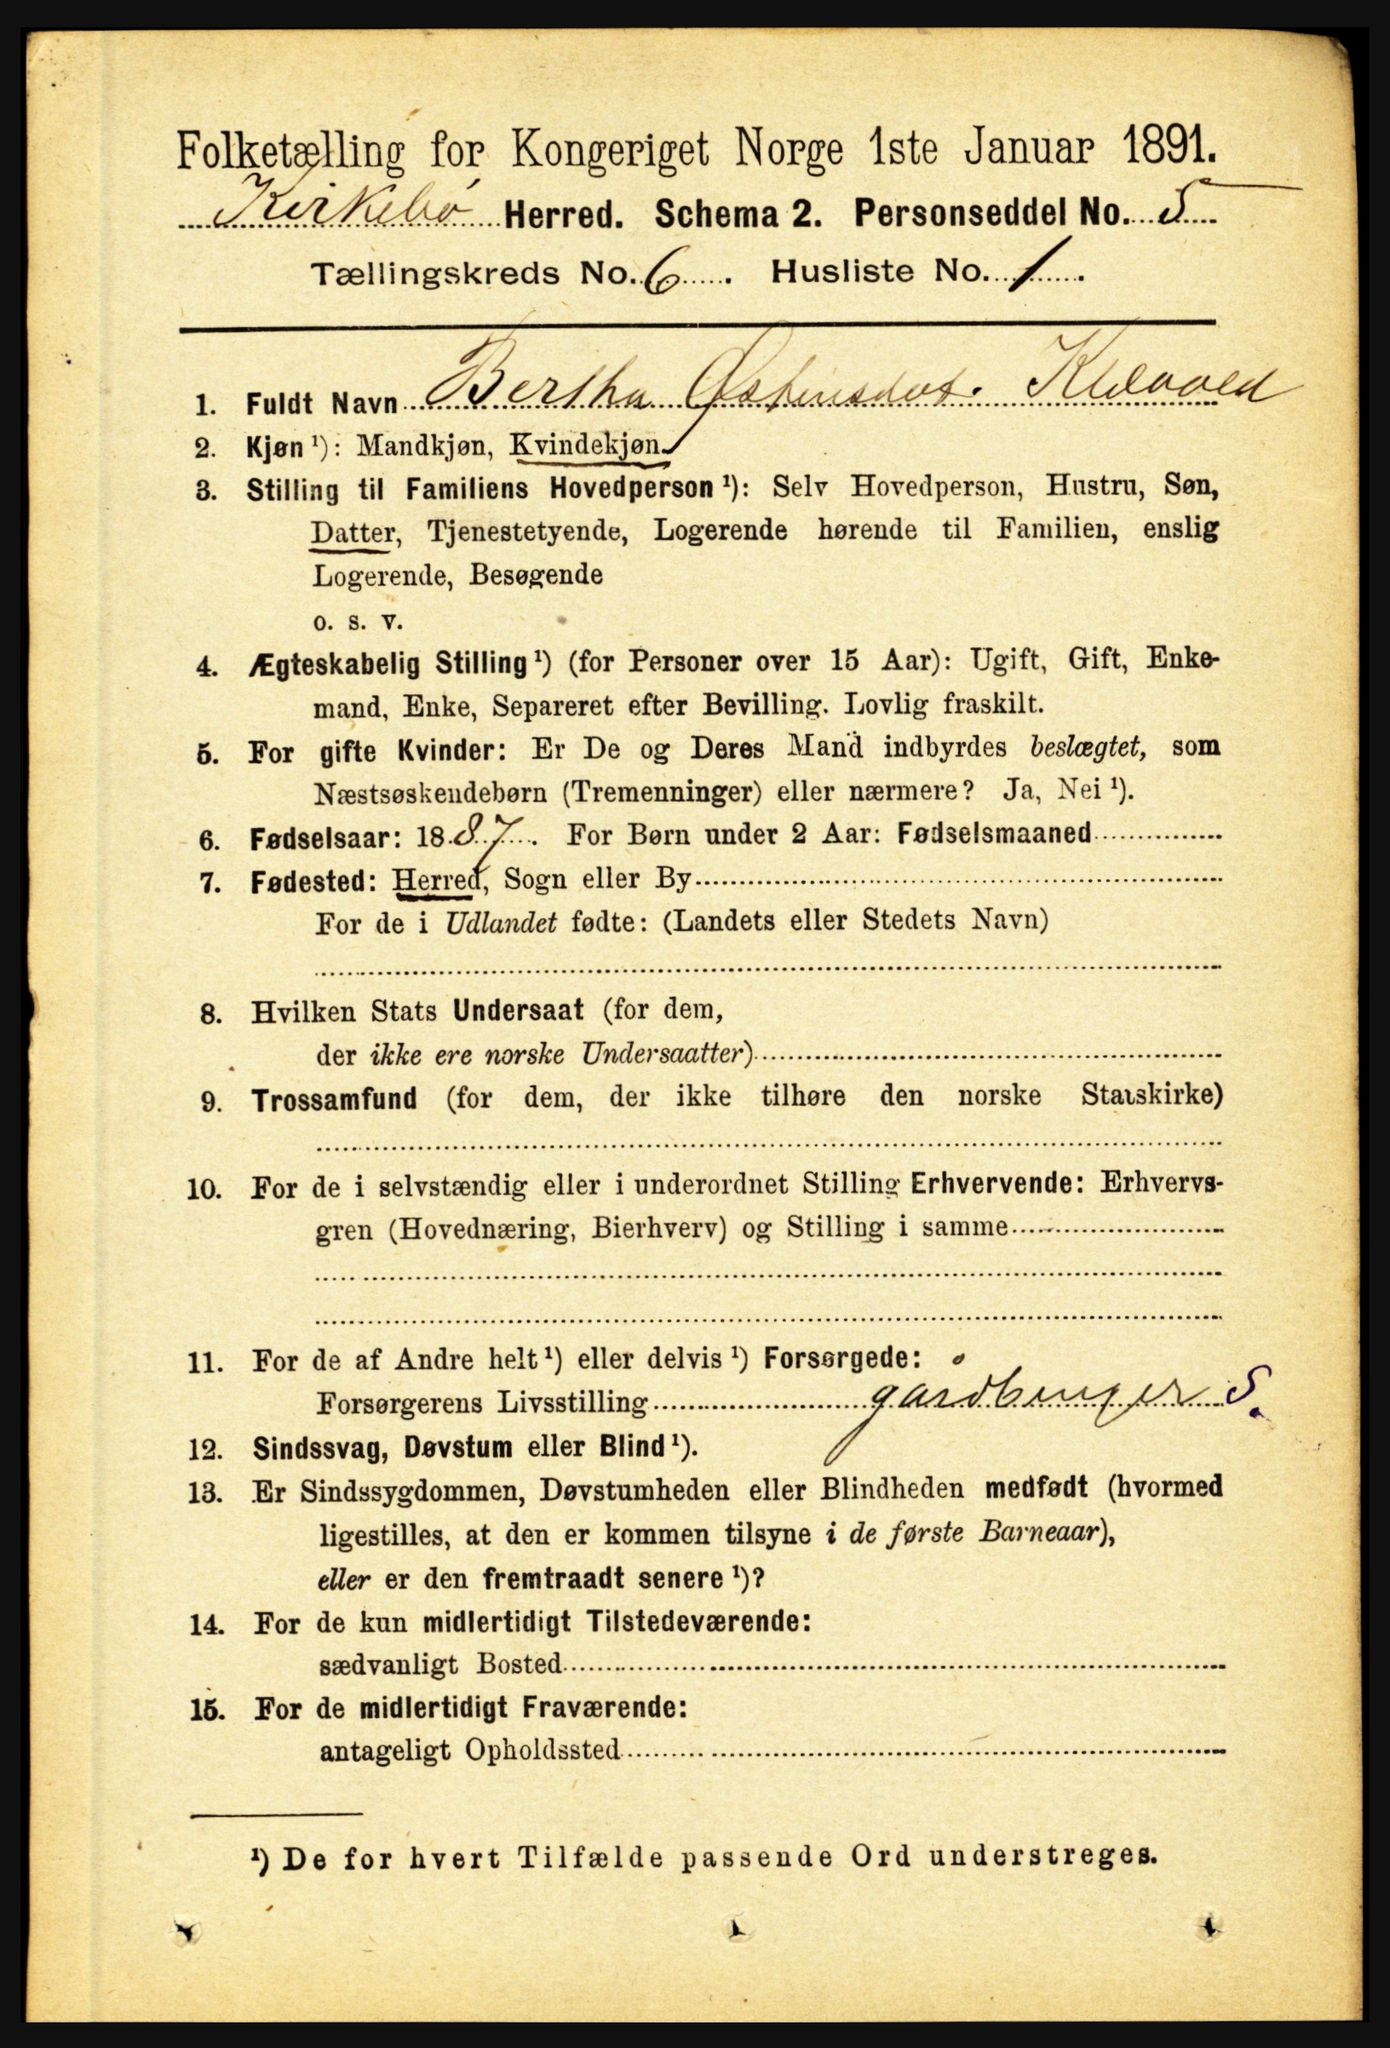 Folketælling for Kongeriget Norge 1ste Januar 1891.
Kirkebø Herred. Schema 2. Personseddel No. 5
Tællingskreds No. 6. Husliste No. 1.
1. Fuldt Navn Bertha Østensdat.
2. Kjøn ¹): Mandkjøn, Kvindekjøn.
3. Stilling til Familiens Hovedperson ¹): Selv Hovedperson, Hustru, Søn,
Datter, Tjenestetyende, Logerende hørende til Familien, enslig
Logerende, Besøgende
o. s. v.
4. Ægteskabelig Stilling ¹) (for Personer over 15 Aar): Ugift, Gift, Enke-
mand, Enke, Separeret efter Bevilling. Lovlig fraskilt.
5. For gifte Kvinder: Er De og Deres Mand indbyrdes beslægtet, som
Næstsøskendebørn (Tremenninger) eller nærmere? Ja, Nei ¹).
6. Fødselsaar: 1887. For Børn under 2 Aar: Fødselsmaaned
7. Fødested: Herred, Sogn eller By
For de i Udlandet fødte: (Landets eller Stedets Navn)
8. Hvilken Stats Undersaat (for dem,
der ikke ere norske Undersaatter)
9. Trossamfund (for dem, der ikke tilhøre den norske Statskirke)
10. For de i selvstændig eller i underordnet Stilling Erhvervende: Erhvervs-
gren (Hovednæring, Bierhverv) og Stilling i samme
11. For de af Andre helt ¹) eller delvis ¹) Forsørgede:
Forsørgerens Livsstilling gardbruger S.
12. Sindssvag, Døvstum eller Blind ¹).
13. Er Sindssygdommen, Døvstumheden eller Blindheden medfødt (hvormed
ligestilles, at den er kommen tilsyne i de første Barneaar),
eller er den fremtraadt senere ¹)?
14. For de kun midlertidigt Tilstedeværende:
sædvanligt Bosted
15. For de midlertidigt Fraværende:
antageligt Opholdssted
¹) De for hvert Tilfælde passende Ord understreges.